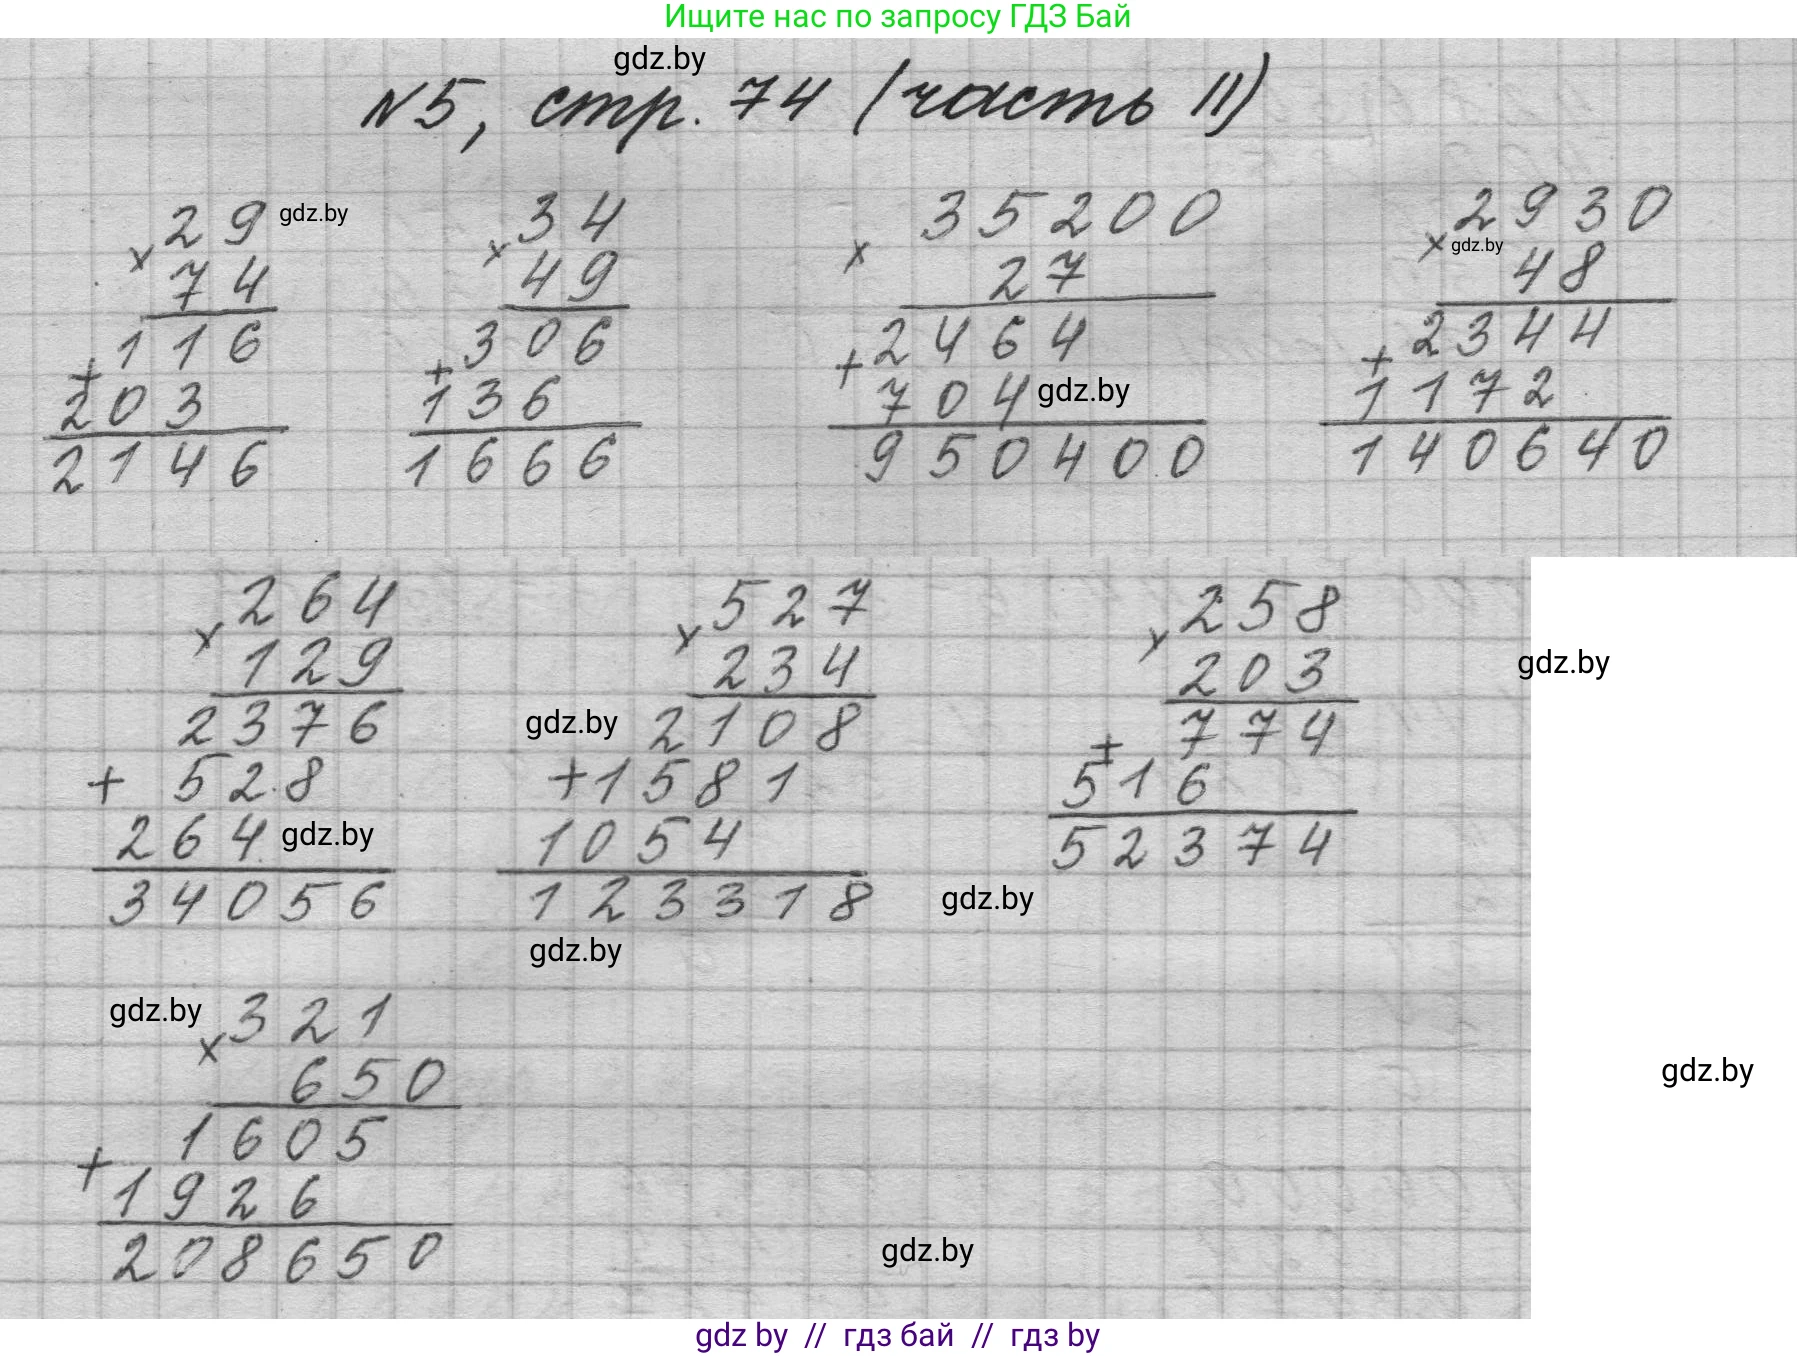 Ищите нас по запросу ГДЗ Бай
gdz.by
№5, стр. 74 (часть II)
29 gdz.by 34 35200 2930
× 74 × 49 × 27 × gdz.by 48
116 306 2464 2344
+ 203 + 136 + 704 gdz.by + 1172
2146 1666 950400 140640
264 527 258
× 129 × 234 × 203 gdz.by
2376 gdz.by 2108 774
+ 528 + 1581 + 516
264 gdz.by 1054 52374
34056 123318 gdz.by
gdz.by
gdz.by 321
× 650 gdz.by
1605
+ 1926
208650 gdz.by
gdz by // гдз бай // гдз by